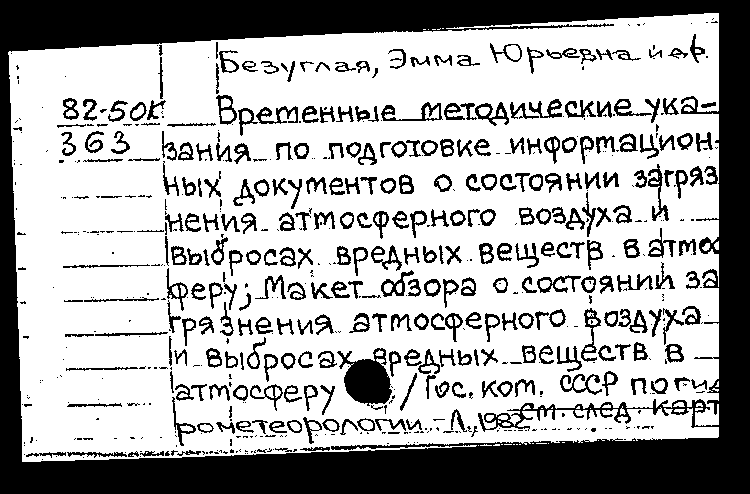 Безуглая, Эмма Юрьевна и др.
82-50К Временные методические ука-
363 зания по подготовке информацион-
ных документов о состоянии загряз
нения атмосферного воздуха и
выбросах вредных веществ в атмос
феру; Макет обзора о состоянии за
грязнения атмосферного воздуха
и выбросах вредных веществ в
атмосферу / Гос. ком. СССР по гид
рометеорологии. - Л., 1982
см. след. карт